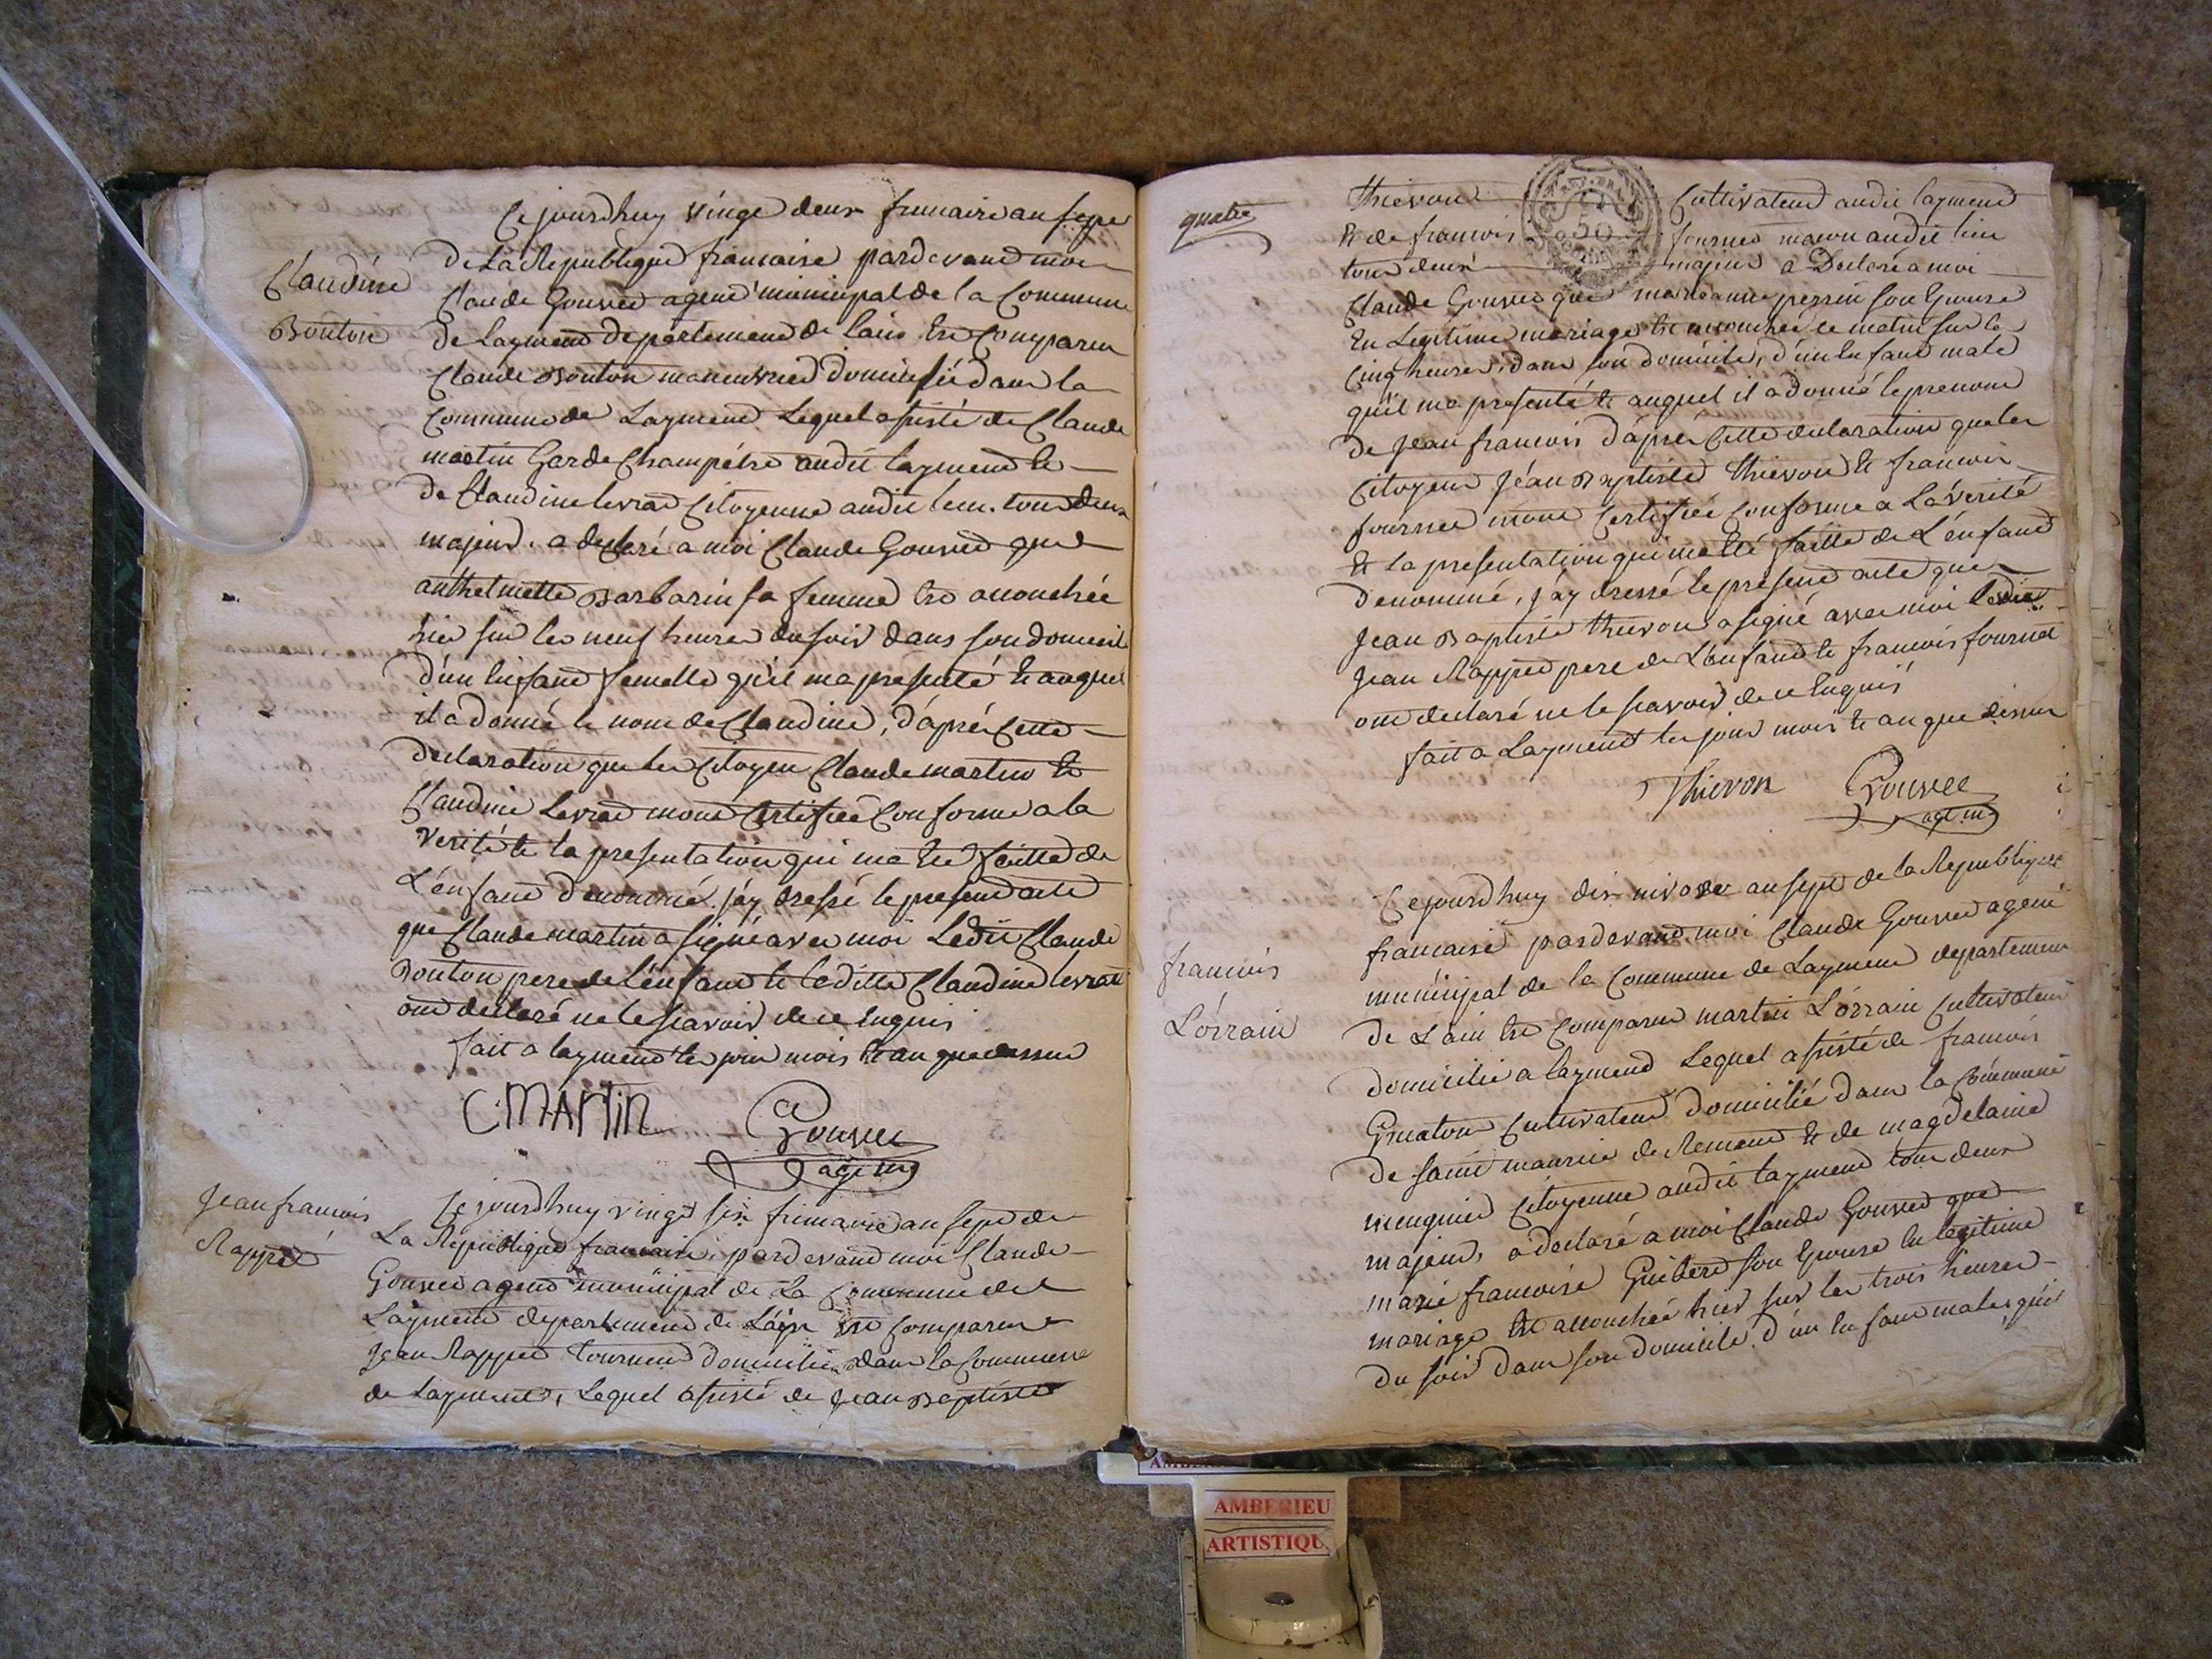 Ce jourdhuy vingt deux frimaire an sept
Claudine
Bouton
de La Republique francaise pardevand moi
Claude Gouvet agend municipal de la Commune
de Laymend departemend de lain Est Comparu
Claude Bouton maneuvred domicilié dans la
Commune de Laymend Lequel assisté de Claude
martin Garde Champétre audit laymend Et
de Claudine levrat Citoyenne audit lieu. tous deux
majeurs. a declaré a moi Claude Gouvet que
anthelmette Barbarin sa femme Est accouchée
hier sur les neuf heures du soir dans son domicile
d'un Enfand femelle qu'il ma presenté Et auquel
il a donné le nom de Claudine, d'aprés Cette
declaration que les Citoyen Claude martin Et
Claudine Levrat mont Certifiée Conforme a la
verité Et la presentation qui ma Eté faitte de
L'enfand denommé. j'ay dressé le presend acte
que Claude martin a signé avec moi Ledit Claude
Bouton pere de L'enfand Et laditte Claudine levrat
ont declaré ne le scavoir de ce Enquis
fait a laymend les jour mois Et an que dessus
C. MARTIN Gouvet
agt. m.
Jean francois
Rappet
Ce jourdhuy vingt six frimaire an sept de
La Republique francaise, pardevand moi Claude
Gouvet agend municipal de La Commune de
Laymend departemend de L'ain Est Comparu
Jean Rappet tourneur domicilié dans la Commune
de Laymend, Lequel assisté de Jean Baptiste
quatre
thievon Cultivateur audit laymend
Et de francois fournet macon audit lieu
tous deux majeurs a Declaré a moi
Claude Gouvet que marianne perrin son Epouse
En Legitime mariage Est accouchée ce matin sur les
Cinq heures dans son domicile, d'un Enfant male
qu'il ma presenté Et auquel il a donné le prenom
de Jean francois d'aprés Cette declaration que les
Citoyens Jéan Baptiste thievon Et francois
fournet mont Certifiée Conforme a La verité
Et La presentation qui ma Eté faitte de L'enfand
denommé, j'ay dressé le presend acte que
Jean Baptiste thievon a signé avec moi Ledit
Jean Rappet pere de L'enfand Et francois fournet
ont declaré ne le scavoir de ce Enquis
fait a Laymend les jour mois Et an que dessus
Thievon Gouvet
agt. m.
francois
Lórrain
Ce jourdhuy dix nivose an sept de la Republique
francaise pardevand moi Claude Gouvet agent
municipal de la Commune de Laymend departemend
de Lain Est Comparu martin Lórrain Cultivateur
domicilié a laymend Lequel assisté de francois
Cultivateur domicilié dans la Commune
de saint maurice de Remend Et de magdelaine
Citoyenne audit laymend tous deux
majeurs, a declaré a moi Claude Gouvet que
marie francoise Guiberd son Epouse En legitime
mariage Est accouchée hier sur les trois heures
du soir dans son domicile d'un Enfant male, qu'il
AMBERIEU
ARTISTIQU